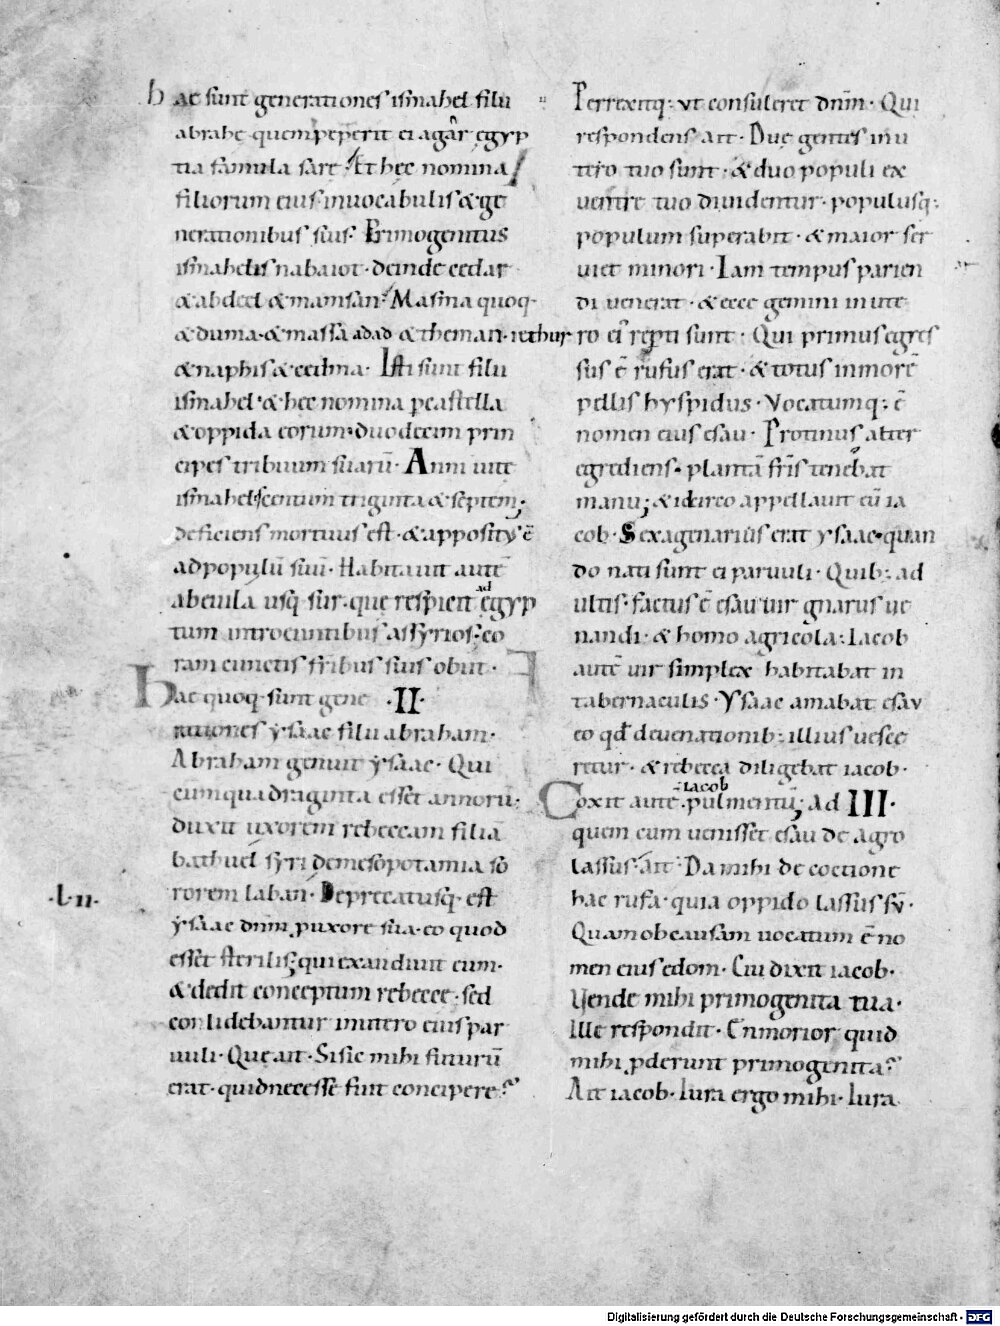 hac sunt generationes ismahel filii
abrahe quem peperit ei agar egyp
tia famula sare · Et hec nomina
filiorum eius in uocabulis & ge
nerationibus suis · Primogenitus
ismahelis nabaiot · deinde cedar
& abdeel & mamsan · Masma quoq·
& duma · & massa adad & theman · iethur
& naphis & cedma · Isti sunt filii
ismahel · & hec nomina p castella
& oppida eorum · duodecim prin
cipes tribuum suarū · Anni uite
ismahel centum triginta & septem ;
deficiens mortuus est · & appositus ē
ad populū suū · Habitauit autē
ab euila usq; sur · que respicit ad egyp
tum introeuntibus assyrios · co
ram cunctis fribus suis obiit ·
Hac quoq· sunt gene · II ·
rationes ysaac filii abraham ·
Abraham genuit ysaac · Qui
cum quadraginta esset annorū ·
duxit uxorem rebeccam filiā
bathuel syri de mesopotamia so
rorem laban · Deprecatusq· est
· L II ·
ysaac dnm p uxore sua · eo quod
esset sterilis ; qui exaudiuit eum ·
& dedit conceptum rebecce · sed
conlidebantur in utero eius par
uuli · Que ait · Si sic mihi futurū
erat · quid necesse fuit concipere ?
Perrexitq; ut consuleret dnm · Qui
respondens ait · Due gentes in u
tero tuo sunt · & duo populi ex
uentre tuo diuidentur · populusq;
populum superabit · & maior ser
uiet minori · Iam tempus parien
di uenerat · & ecce gemini in ute
ro ei reperti sunt · Qui primus egres
sus ē rufus erat · & totus in morē
pellis hyspidus · Vocatumq; ē
nomen eius esau · Protinus alter
egrediens · plantā fris tenebat
manu ; & idcirco appellauit eū ia
cob · Sexagenarius erat ysaac · quan
do nati sunt ei paruuli · Quib; ad
ultis · factus ē esau uir gnarus ue
nandi · & homo agricola · Iacob
autē uir simplex habitabat in
tabernaculis · Ysaac amabat esau
eo qd de uenationib; illius uesce
retur · & rebecca diligebat iacob ·
Coxit autē · iacob pulmentū ; ad III ·
quem cum uenisset esau de agro
lassus · ait · Da mihi de coctione
hac rufa · quia oppido lassus sū ·
Quam ob causam uocatum ē no
men eius edom · Cui dixit iacob ·
Uende mihi primogenita tua ·
Ille respondit · En morior quid
mihi pderunt primogenita ?
Ait iacob · Iura ergo mihi · Iura
Digitalisierung gefördert durch die Deutsche Forschungsgemeinschaft - DFG